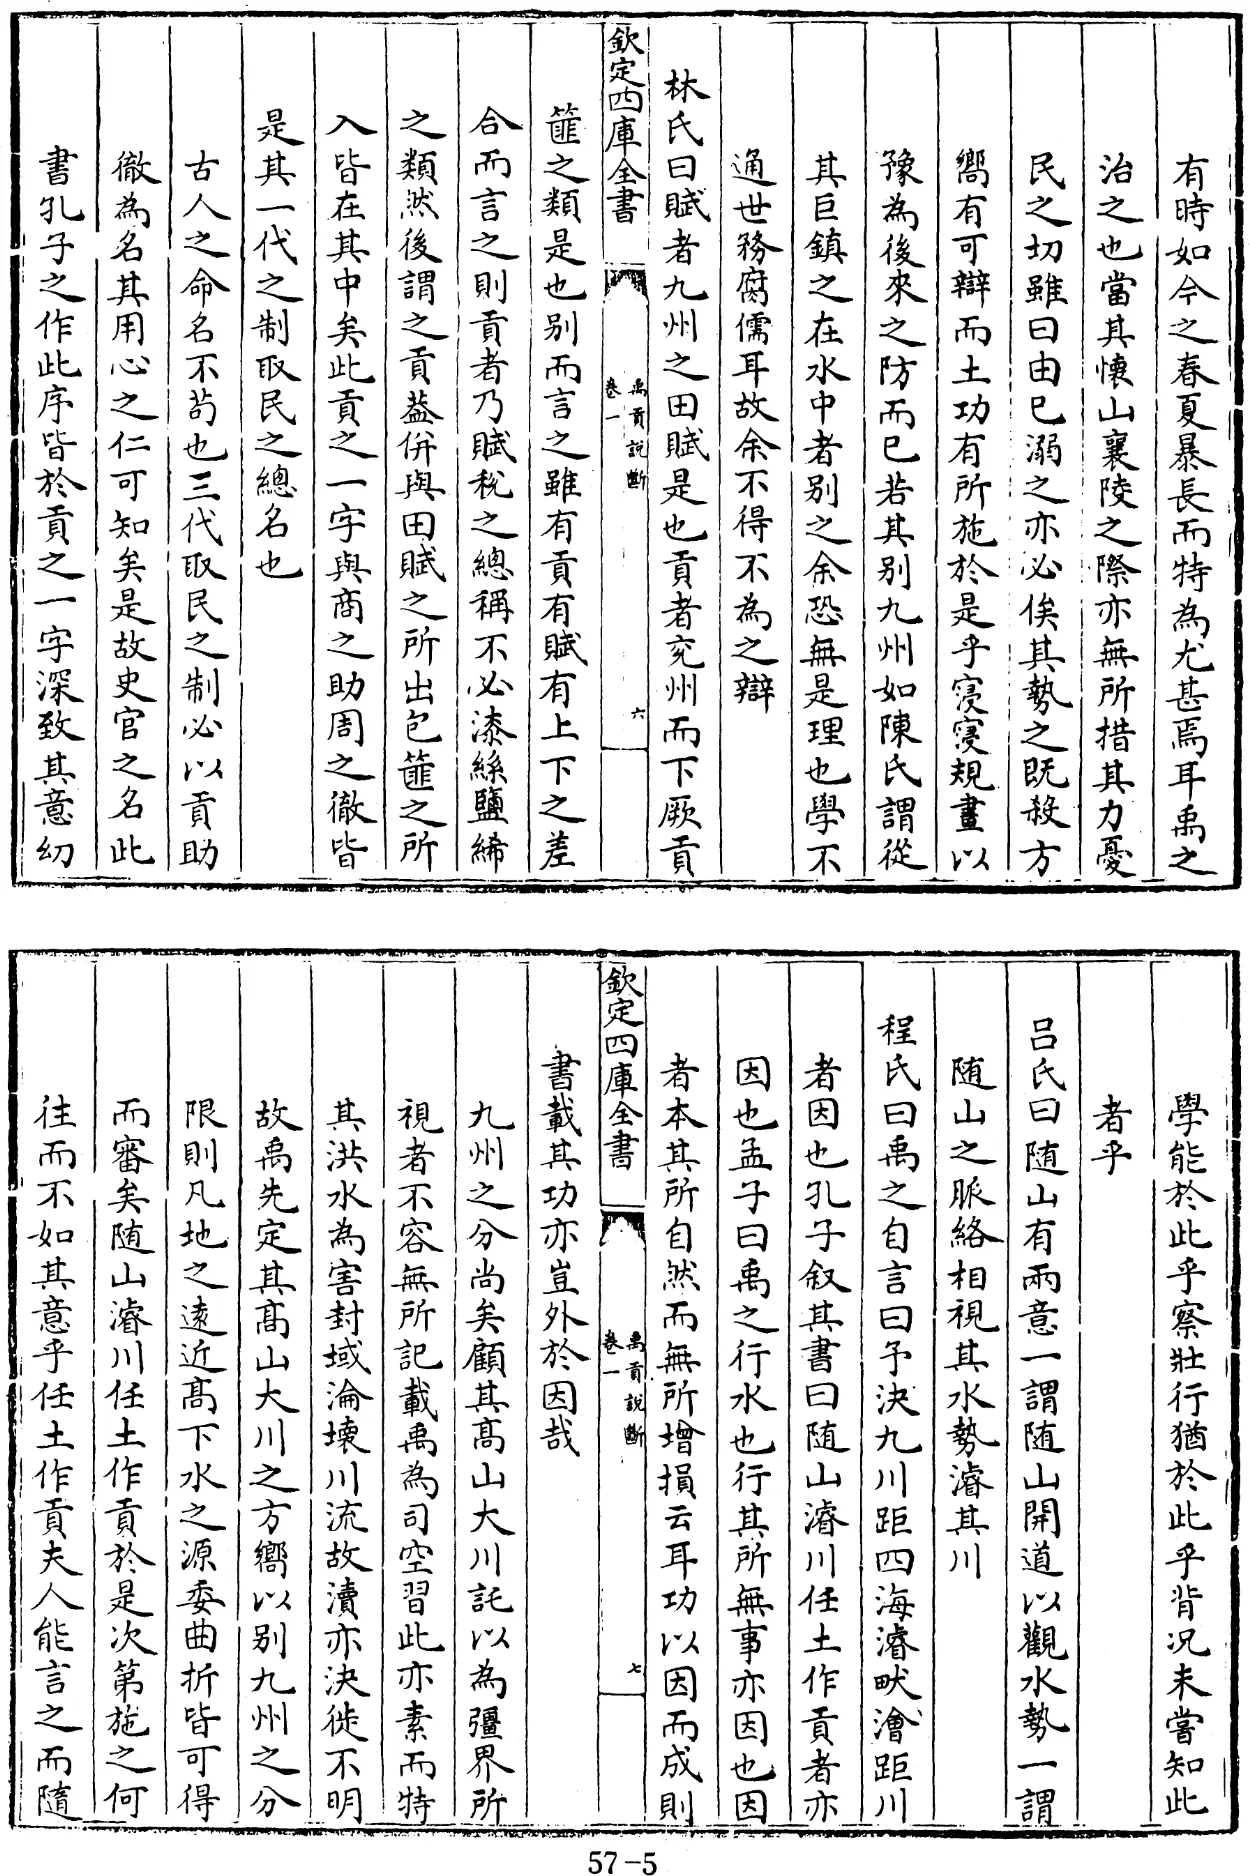 有時如今之春夏暴長而特為尤甚焉耳禹之
治之也當其懐山襄陵之際亦無所措其力憂
民之切雖曰由已溺之亦必俟其勢之既殺方
嚮有可辯而土功有所施於是乎寖寖規畫以
豫為後來之防而已若其别九州如陳氏謂從
其巨鎮之在水中者别之余恐無是理也學不
通世務腐儒耳故余不得不為之辯
林氏曰賦者九州之田賦是也貢者兖州而下厥貢
欽定四庫全書
禹貢說斷
卷一
六
篚之類是也别而言之雖有貢有賦有上下之差
合而言之則貢者乃賦税之總稱不必漆絲鹽絺
之類然後謂之貢葢併與田賦之所出包篚之所
入皆在其中矣此貢之一字與商之助周之徹皆
是其一代之制取民之總名也
古人之命名不苟也三代取民之制必以貢助
徹為名其用心之仁可知矣是故史官之名此
書孔子之作此序皆於貢之一字深致其意幼
學能於此乎察壯行猶於此乎背况未嘗知此
者乎
吕氏曰随山有兩意一謂随山開道以觀水勢一謂
随山之脈絡相視其水勢濬其川
程氏曰禹之自言曰予決九川距四海濬畎澮距川
者因也孔子叙其書曰随山濬川任土作貢者亦
因也孟子曰禹之行水也行其所無事亦因也因
者本其所自然而無所增損云耳功以因而成則
欽定四庫全書
禹貢說斷
卷一
七
書載其功亦豈外於因哉
九州之分尚矣顧其髙山大川託以為疆界所
視者不容無所記載禹為司空習此亦素而特
其洪水為害封域淪壊川流故瀆亦決徙不明
故禹先定其髙山大川之方嚮以别九州之分
限則凡地之遠近髙下水之源委曲折皆可得
而審矣随山濬川任土作貢於是次第施之何
往而不如其意乎任土作貢夫人能言之而隨
57-5